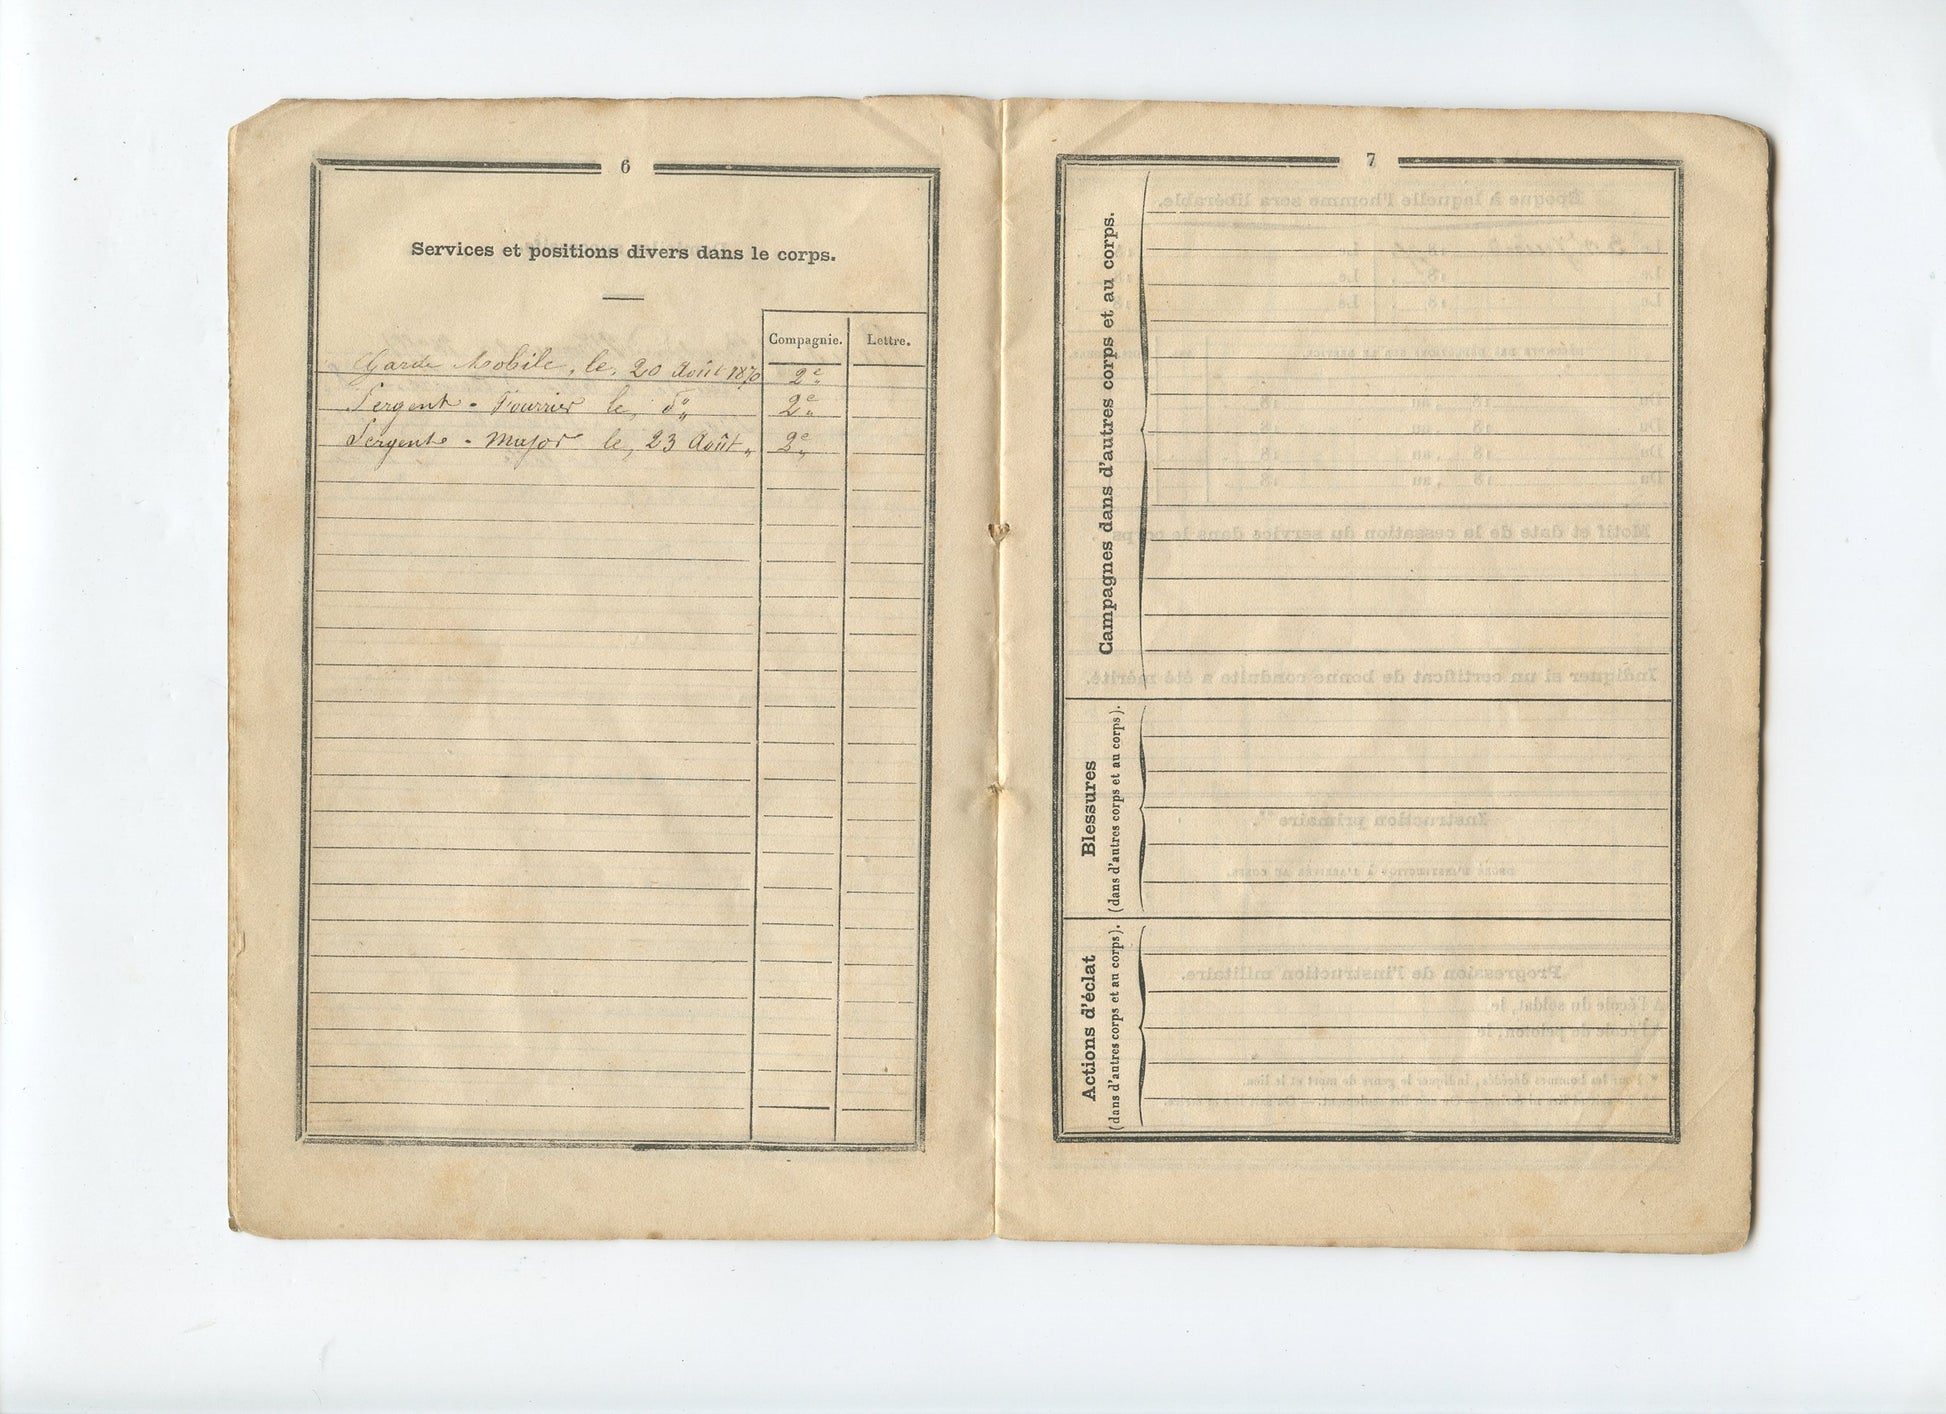 6
Services et positions divers dans le corps.
Compagnie. Lettre.
Garde Mobile, le, 20 Août 1870 2e „
Sergent - Fourrier le, do„ 2e „
Sergent - Major le, 23 Août „ 2e „
7
Campagnes dans d'autres corps et au corps.
Blessures
(dans d'autres corps et au corps).
Actions d'éclat
(dans d'autres corps et au corps).